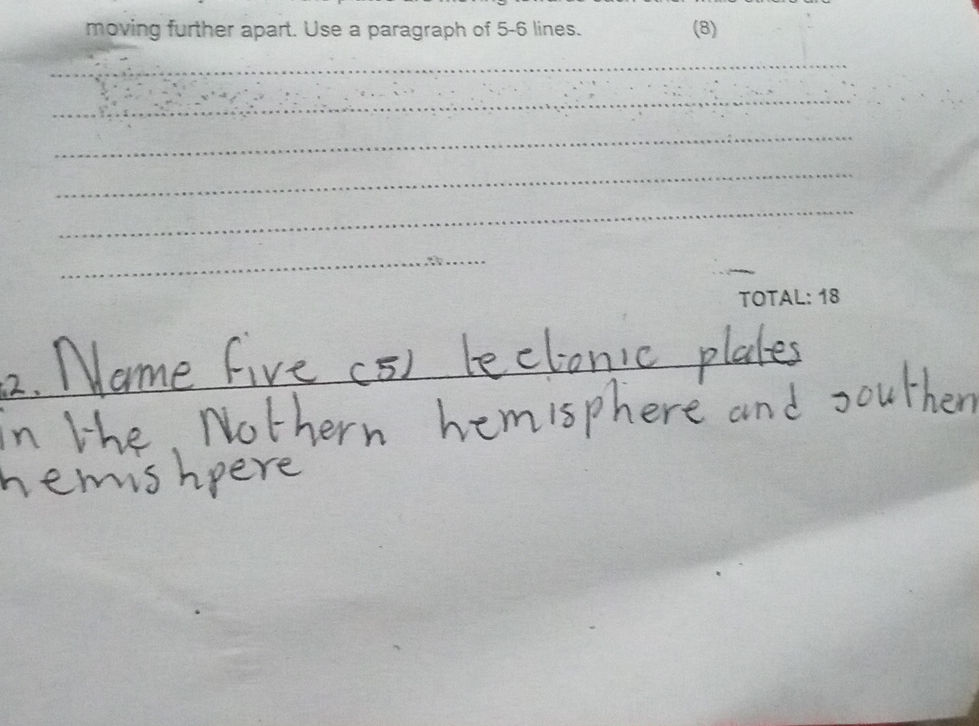 moving further apart. Use a paragraph of 5-6 lines. (8)
TOTAL: 18
2. Name five (5) tectonic plates
in the Nothern hemisphere and southern
hemishpere